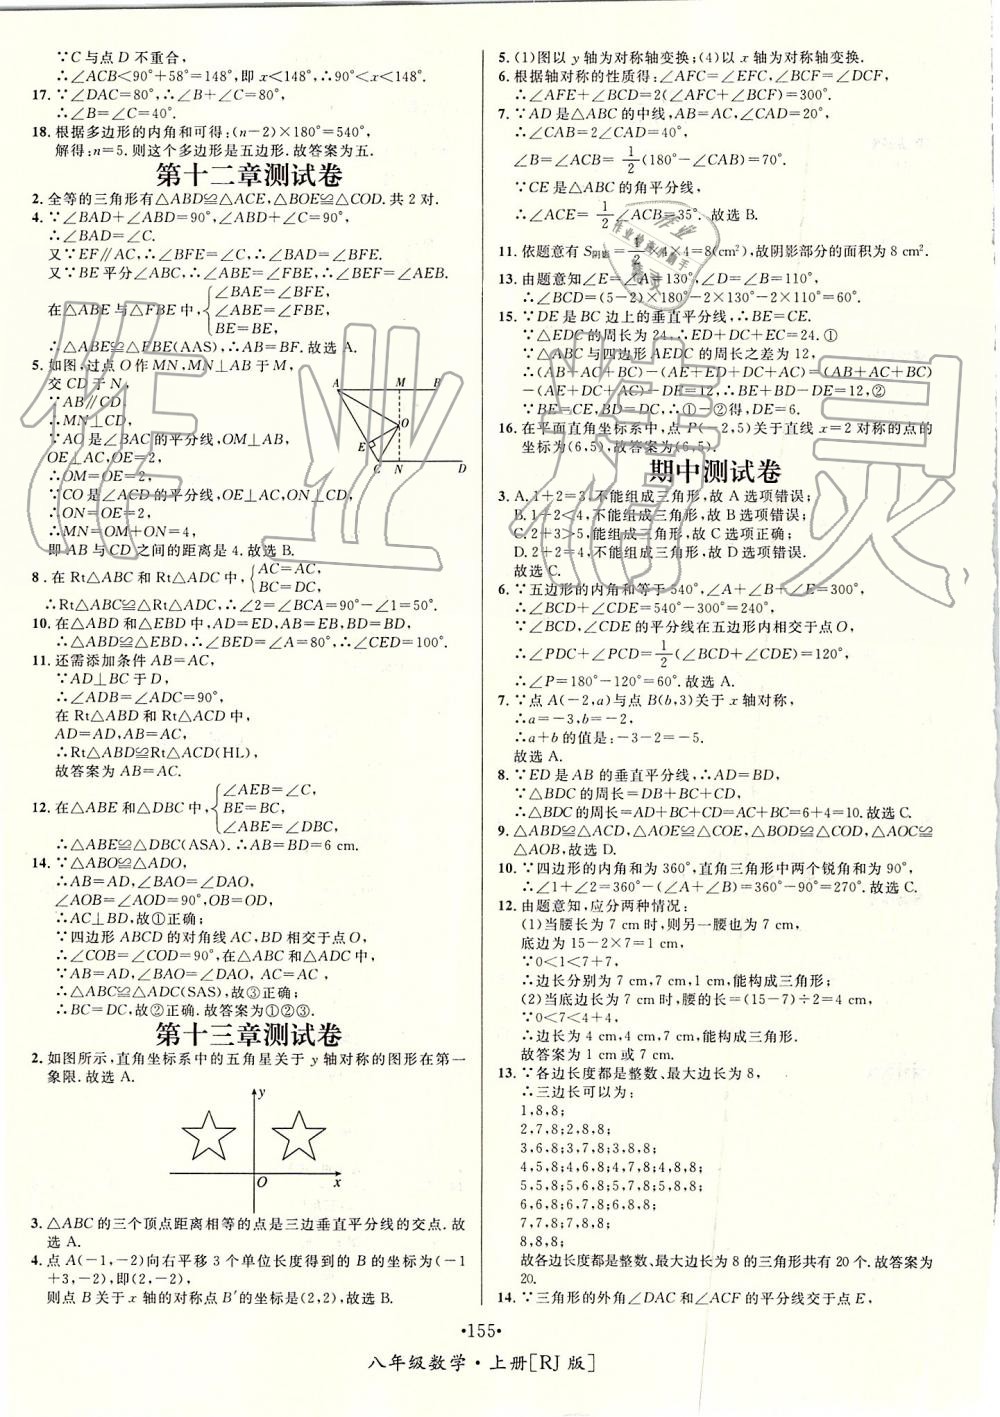 ∵C与点 D 不重合,
∴∠ACB<90°+58°=148°,即 x<148°,∴90°<x<148°.
17. ∵∠DAC=80°,∴∠B+∠C=80°,
∴∠B=∠C=40°.
18. 根据多边形的内角和可得:(n-2)×180°=540°,
解得:n=5. 则这个多边形是五边形.故答案为五.
第十二章测试卷
2. 全等的三角形有△ABD≌△ACE,△BOE≌△COD. 共 2 对.
4. ∵∠BAD+∠ABD=90°,∠BAD+∠CAD=90°,
∴∠BAD=∠C.
又∵EF∥AC,∴∠BFE=∠C,∴∠BAD=∠BFE.
又∵BE 平分∠ABC,∴∠ABE=∠FBE,∴∠BEF=∠AEB.
在△ABE 与△FBE 中, {∠BAE=∠BFE,
∠ABE=∠FBE,
BE=BE,
∴△ABE≌△FBE(AAS),∴AB=BF. 故选 A.
5. 如图,过点 O 作 MN,MN⊥AB 于 M,
交 CD 于 N,
∵AB∥CD,
∴MN⊥CD,
∵AO 是∠BAC 的平分线,OM⊥AB,
OE⊥AC,OE=2,
∴OM=OE=2,
∵CO 是∠ACD 的平分线,OE⊥AC,ON⊥CD,
∴ON=OE=2,
∴MN=OM+ON=4,
即 AB 与 CD 之间的距离是 4.故选 B.
A M B
O
E
C N D
8. 在 Rt△ABC 和 Rt△ADC 中, {AC=AC,
BC=DC,
∴Rt△ABC≌△Rt△ADC,∴∠2=∠BCA=90°-∠1=50°.
10. 在△ABD 和△EBD 中,AD=ED,AB=EB,BD=BD,
∴△ABD≌△EBD,∴∠BED=∠A=80°,∴∠CED=100°.
11. 还需添加条件 AB=AC,
∵AD⊥BC 于 D,
∴∠ADB=∠ADC=90°,
在 Rt△ABD 和 Rt△ACD 中,
AD=AD,AB=AC,
∴Rt△ABD≌Rt△ACD(HL),
故答案为 AB=AC.
12. 在△ABE 和△DBC 中, {∠AEB=∠C,
BE=BC,
∠ABE=∠DBC,
∴△ABE≌△DBC(ASA). ∴AB=BD=6 cm.
14. ∵△ABO≌△ADO,
∴AB=AD,∠BAO=∠DAO,
∠AOB=∠AOD=90°,OB=OD,
∴AC⊥BD,故①正确;
∵四边形 ABCD 的对角线 AC,BD 相交于点 O,
∴∠COB=∠COD=90°,在△ABC 和△ADC 中,
∵AB=AD,∠BAO=∠DAO, AC=AC ,
∴△ABC≌△ADC(SAS),故③正确;
∴BC=DC,故②正确.故答案为①②③.
第十三章测试卷
2. 如图所示,直角坐标系中的五角星关于 y 轴对称的图形在第一
象限.故选 A.
y
O x
3. △ABC 的三个顶点距离相等的点是三边垂直平分线的交点.故
选 A.
4. 点 A(-1,-2)向右平移 3 个单位长度得到的 B 的坐标为(-1
+3,-2),即(2,-2),
则点 B 关于 x 轴的对称点 B′的坐标是(2,2),故选 B.
5. (1)图以 y 轴为对称轴变换;(4)以 x 轴为对称轴变换.
6. 根据轴对称的性质得:∠AFC=∠EFC,∠BCF=∠DCF,
∴∠AFE+∠BCD=2(∠AFC+∠BCF)=300°.
7. ∵AD 是△ABC 的中线,AB=AC,∠CAD=20°,
∴∠CAB=2∠CAD=40°,
∠B=∠ACB=1/2(180°-∠CAB)=70°.
∵CE 是△ABC 的角平分线,
∴∠ACE=1/2∠ACB=35°. 故选 B.
11. 依题意有 S阴影=1/2×4×4=8(cm²),故阴影部分的面积为 8 cm².
13. 由题意知∠E=∠A=130°,∠D=∠B=110°,
∴∠BCD=(5-2)×180°-130°×2-110°×2=60°.
15. ∵DE 是 BC 边上的垂直平分线,∴BE=CE.
∵△EDC 的周长为 24,∴ED+DC+EC=24.①
∵△ABC 与四边形 AEDC 的周长之差为 12,
∴(AB+AC+BC)-(AE+ED+DC+AC)=(AB+AC+BC)
-(AE+DC+AC)-DE=12,∴BE+BD-DE=12,②
∵BE=CE,BD=DC,∴①-②得,DE=6.
16. 在平面直角坐标系中,点 P(-2,5)关于直线 x=2 对称的点的
坐标为(6,5),故答案为(6,5).
期中测试卷
3. A. 1+2=3,不能组成三角形,故 A 选项错误;
B. 1+2<4,不能组成三角形,故 B 选项错误;
C. 2+3>5,能组成三角形,故 C 选项正确;
D. 2+2=4,不能组成三角形,故 D 选项错误.
故选 C.
6. ∵五边形的内角和等于 540°,∠A+∠B+∠E=300°,
∴∠BCD+∠CDE=540°-300°=240°,
∵∠BCD,∠CDE 的平分线在五边形内相交于点 O,
∴∠PDC+∠PCD=1/2(∠BCD+∠CDE)=120°,
∴∠P=180°-120°=60°.故选 A.
7. ∵点 A(-2,a)与点 B(b,3)关于 x 轴对称,
∴a=-3,b=-2,
∴a+b 的值是:-3-2=-5.
故选 A.
8. ∵ED 是 AB 的垂直平分线,∴AD=BD,
∵△BDC 的周长=DB+BC+CD,
∴△BDC 的周长=AD+BC+CD=AC+BC=6+4=10.故选 C.
9. △ABD≌△ACD,△AOE≌△COE,△BOD≌△COD,△AOC≌
△AOB,故选 D.
10. ∵四边形的内角和为 360°,直角三角形中两个锐角和为 90°,
∴∠1+∠2=360°-(∠A+∠B)=360°-90°=270°.故选 C.
12. 由题意知,应分两种情况:
(1)当腰长为 7 cm 时,则另一腰也为 7 cm,
底边为 15-2×7=1 cm,
∵0<1<7+7,
∴边长分别为 7 cm,7 cm,1 cm,能构成三角形;
(2)当底边长为 7 cm 时,腰的长=(15-7)÷2=4 cm,
∵0<7<4+4,
∴边长为 4 cm,4 cm,7 cm,能构成三角形.
故答案为 1 cm 或 7 cm.
13. ∵各边长度都是整数、最大边长为 8,
∴三边长可以为:
1,8,8;
2,7,8;2,8,8;
3,6,8;3,7,8;3,8,8;
4,5,8;4,6,8;4,7,8;4,8,8;
5,5,8;5,6,8;5,7,8;5,8,8;
6,6,8;6,7,8;6,8,8;
7,7,8;7,8,8;
8,8,8;
故各边长度都是整数、最大边长为 8 的三角形共有 20 个.故答案为
20.
14. ∵三角形的外角∠DAC 和∠ACF 的平分线交于点 E,
·155·
八年级数学·上册[RJ 版]
作业精灵